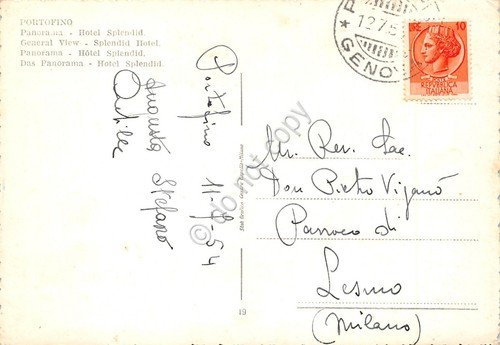 PORTOFINO
Panorama - Hotel Splendid.
General View - Splendid Hotel.
Panorama - Hôtel Splendid.
Das Panorama - Hotel Splendid.
Portofino 11-7-54
Augusta Stefano
GENOVA
LIRE 10
POSTE
REPUBBLICA
ITALIANA
Rev. Sac.
Don Pietro Viganò
Parroco di
Lesmo
(Milano)
19
do not copy